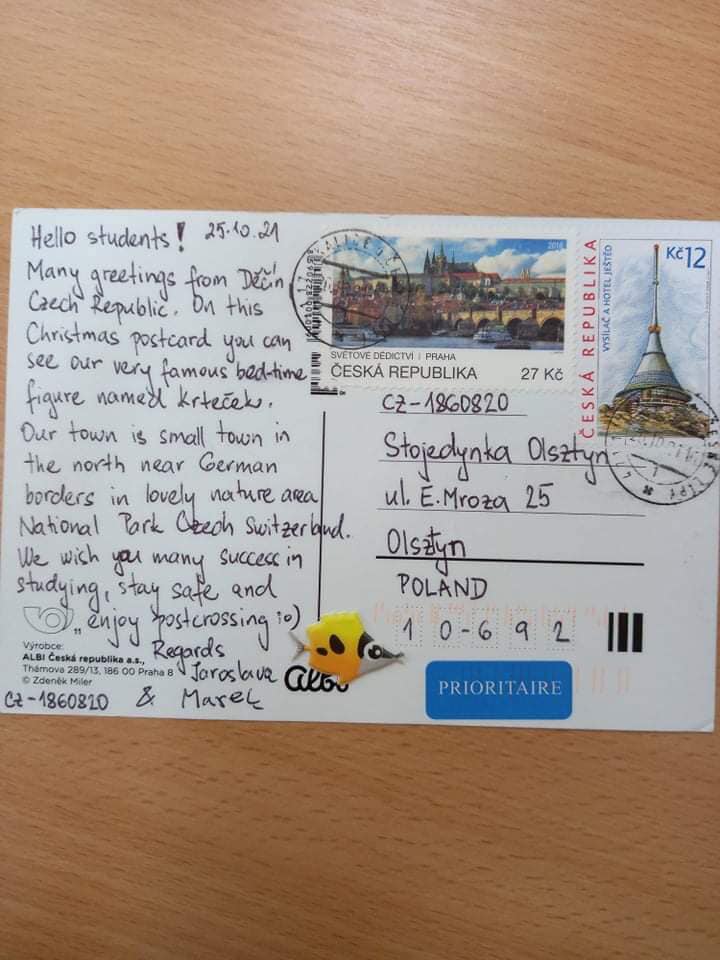 Hello students! 25.10.21
Many greetings from Děčín
Czech Republic. On this
Christmas postcard you can
see our very famous bed-time
figure named Krteček.
Our town is small town in
the north near German
borders in lovely nature area
National Park Czech Switzerland.
We wish you many success in
studying, stay safe and
„enjoy postcrossing :o)
Regards
Jaroslava
& Marek
Výrobce:
ALBI Česká republika a.s.,
Thámova 289/13, 186 00 Praha 8
© Zdeněk Miler
CZ-1860820
Albi
2016
SVĚTOVÉ DĚDICTVÍ | PRAHA
ČESKÁ REPUBLIKA 27 Kč
Kč 12
ČESKÁ REPUBLIKA
VYSÍLAČ A HOTEL JEŠTĚD
CZ-1860820
Stojedynka Olsztyn
ul. E. Mroza 25
Olsztyn
POLAND
10-692
PRIORITAIRE